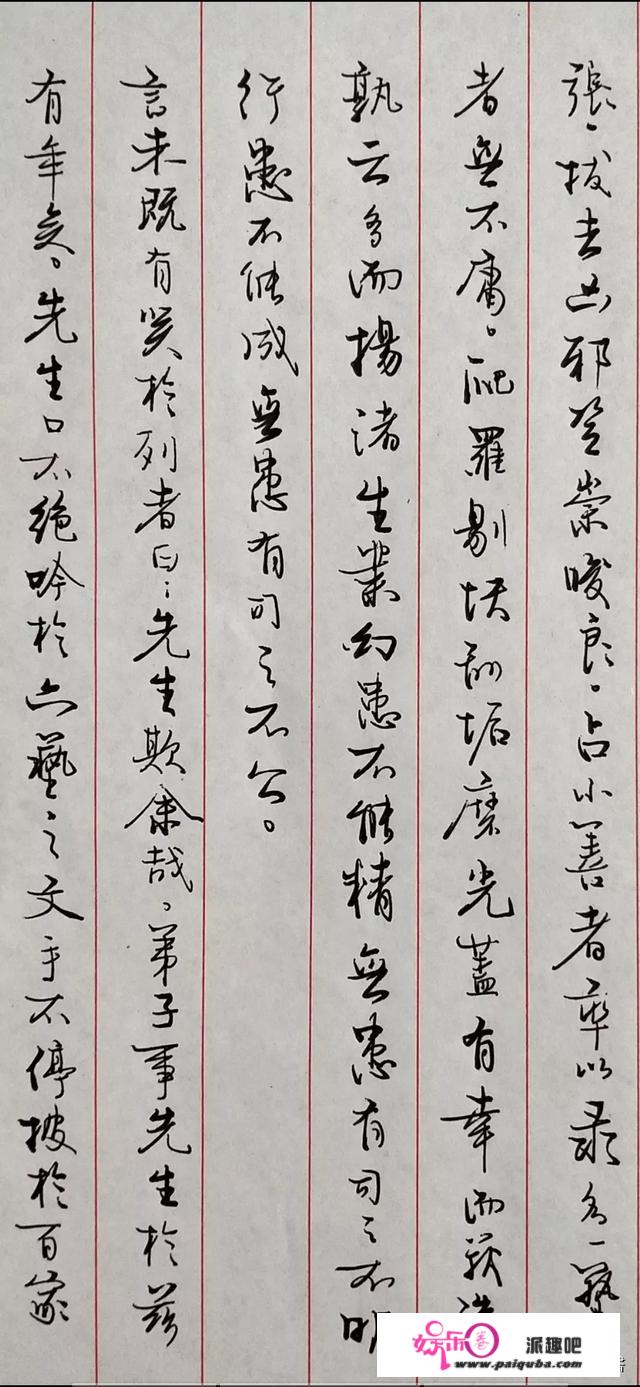 張、拔去凶邪登崇畯良。占小善者率以录名一藝
者無不庸。爬羅剔抉刮垢磨光蓋有幸而获选
孰云多而揚诸生業患不能精無患有司之不明
行患不能成無患有司之不公。
言未既有笑於列者曰:先生欺余哉、弟子事先生於兹
有年矣。先生口不绝吟於六藝之文手不停披於百家
娱乐圈 派趣吧
www.paiquba.com